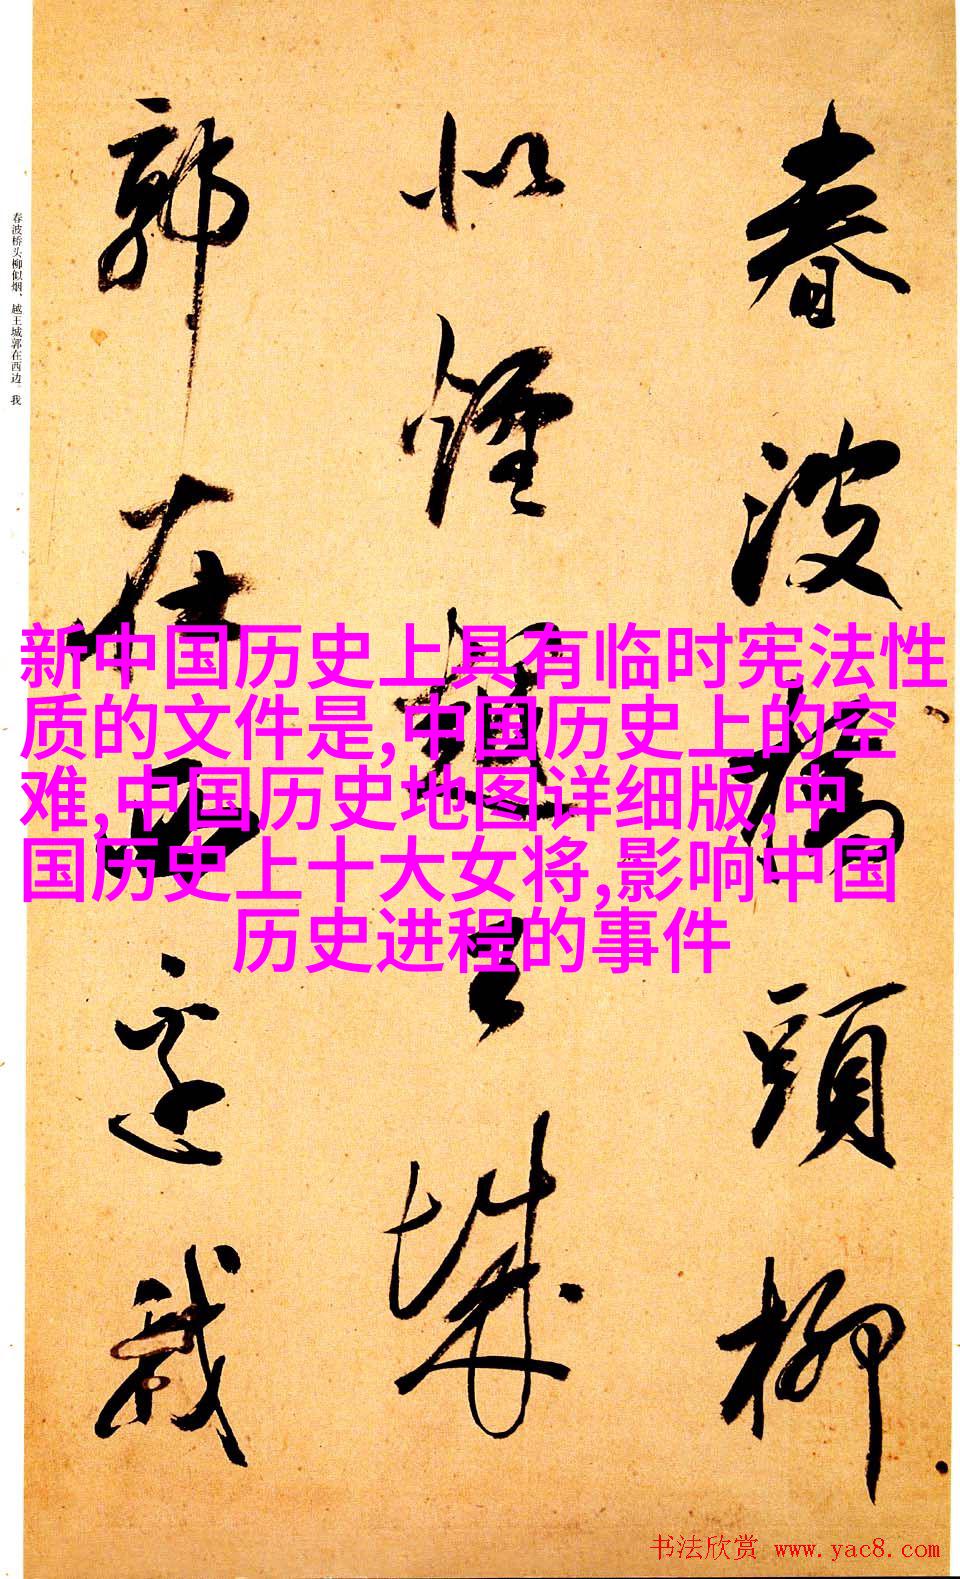 春波橋頭柳
似煙越王城
郭在西邊我
春波桥头柳似烟、越王城郭在西边。我
新中国历史上具有临时宪法性
质的文件是,中国历史上的空
难,中国历史地图详细版,中
国历史上十大女将,影响中国
历史进程的事件
书法欣赏 www.yac8.com